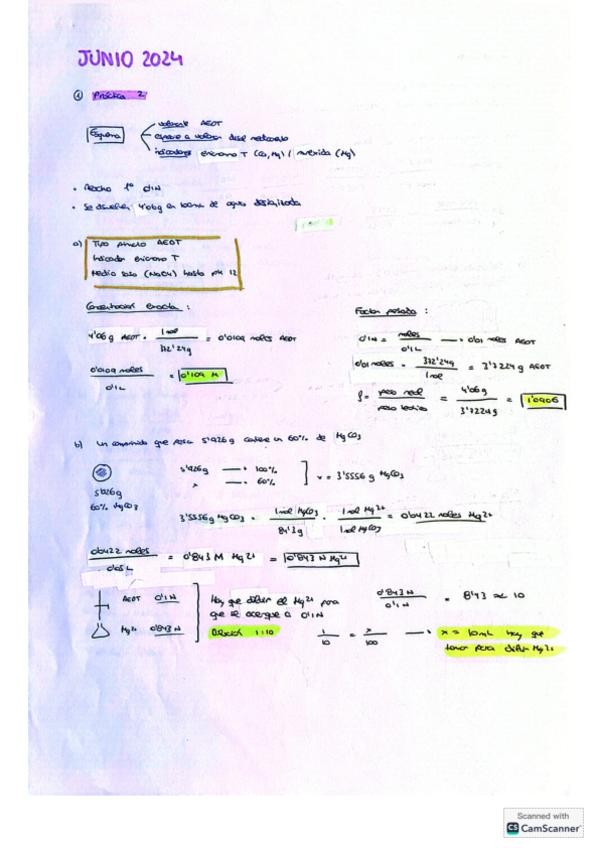 JUNIO 2024
① Práctica 2
Esquema
valorante AEDT
especie a valorar
indicadores ericromo T (Ca, Mg) / murexida (Mg)
• 1º 0'1N
• Se disuelven 4'06g en 100mL de agua destilada
a) Tipo AEDT
Indicador ericromo T
Medio (NaOH) hasta pH 12
Concentración exacta :
4'06 g AEDT · 1 mol / 372'24g = 0'0109 moles AEDT
0'0109 moles / 0'1L = 0'109 M
Factor pesada :
0'1N = moles / 0'1L → 0'01 moles AEDT
0'01 moles · 372'24g / 1 mol = 3'7224 g AEDT
f = peso real / peso teórico = 4'06g / 3'7224g = 1'0906
b) un comprimido que pesa 5'926g contiene un 60% de MgCO3
5'926g
60% MgCO3
5'926g — 100%
x — 60%
x = 3'5556g MgCO3
3'5556g MgCO3 · 1 mol MgCO3 / 84'3g · 1 mol Mg2+ / 1 mol MgCO3 = 0'0422 moles Mg2+
0'0422 moles / 0'05L = 0'843 M Mg2+ = 0'843 N Mg2+
AEDT 0'1N
Mg2+ 0'843N
Hay que diluir el Mg2+ para
que se acerque a 0'1N
0'843N / 0'1N = 8'43 ≈ 10
Dilución 1:10
1/10 = x/100 → x = 10mL hay que
tomar para diluir Mg2+
Scanned with
CS CamScanner